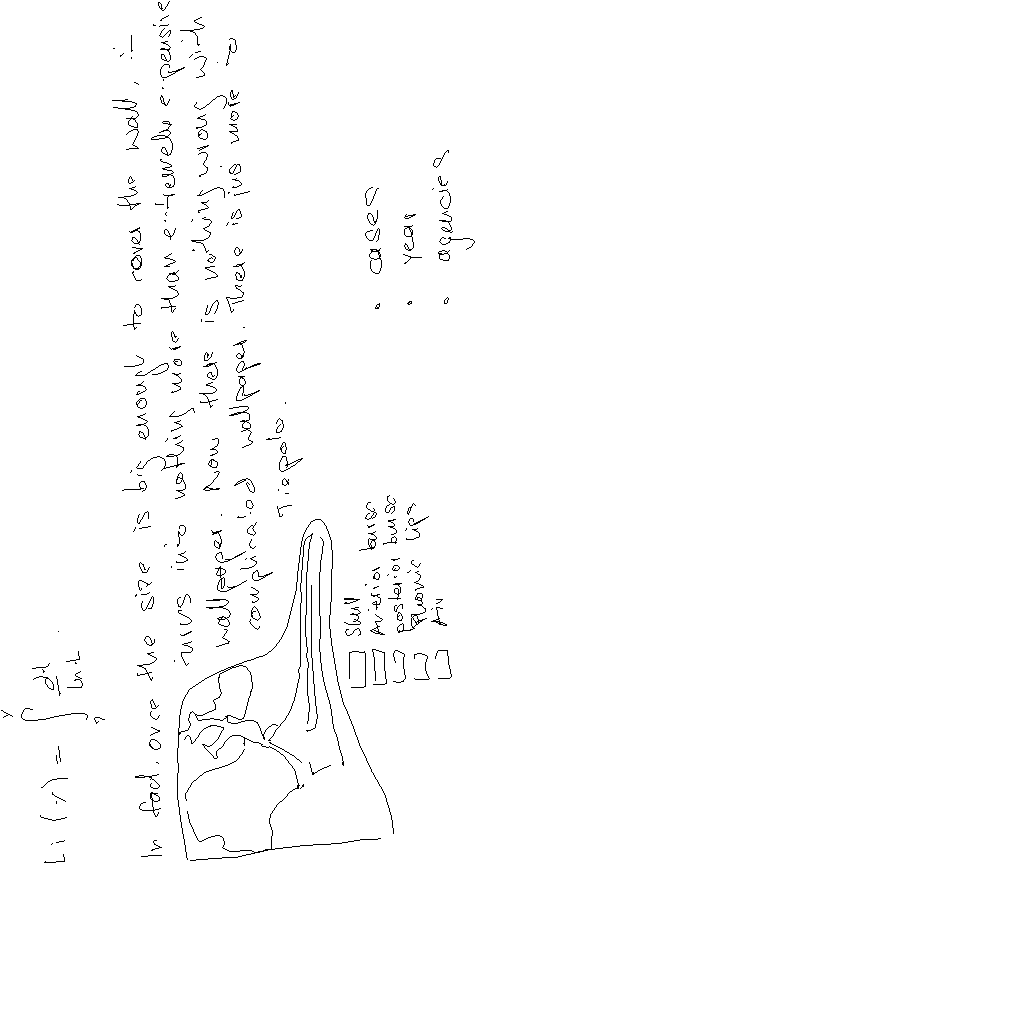 Li (x) = ∫₂ˣ dt / ln t .
In fact, once the size is big enough to cover the wall, it
turns into nothing more than extremely expensive
wallpaper. Now there is nothing wrong with
complicated wallpaper. There is just more to
Tiepolo.
Skull
Anterior bursa
posterior bursa
Phonic lips
Air
• cases
• year
• agencies